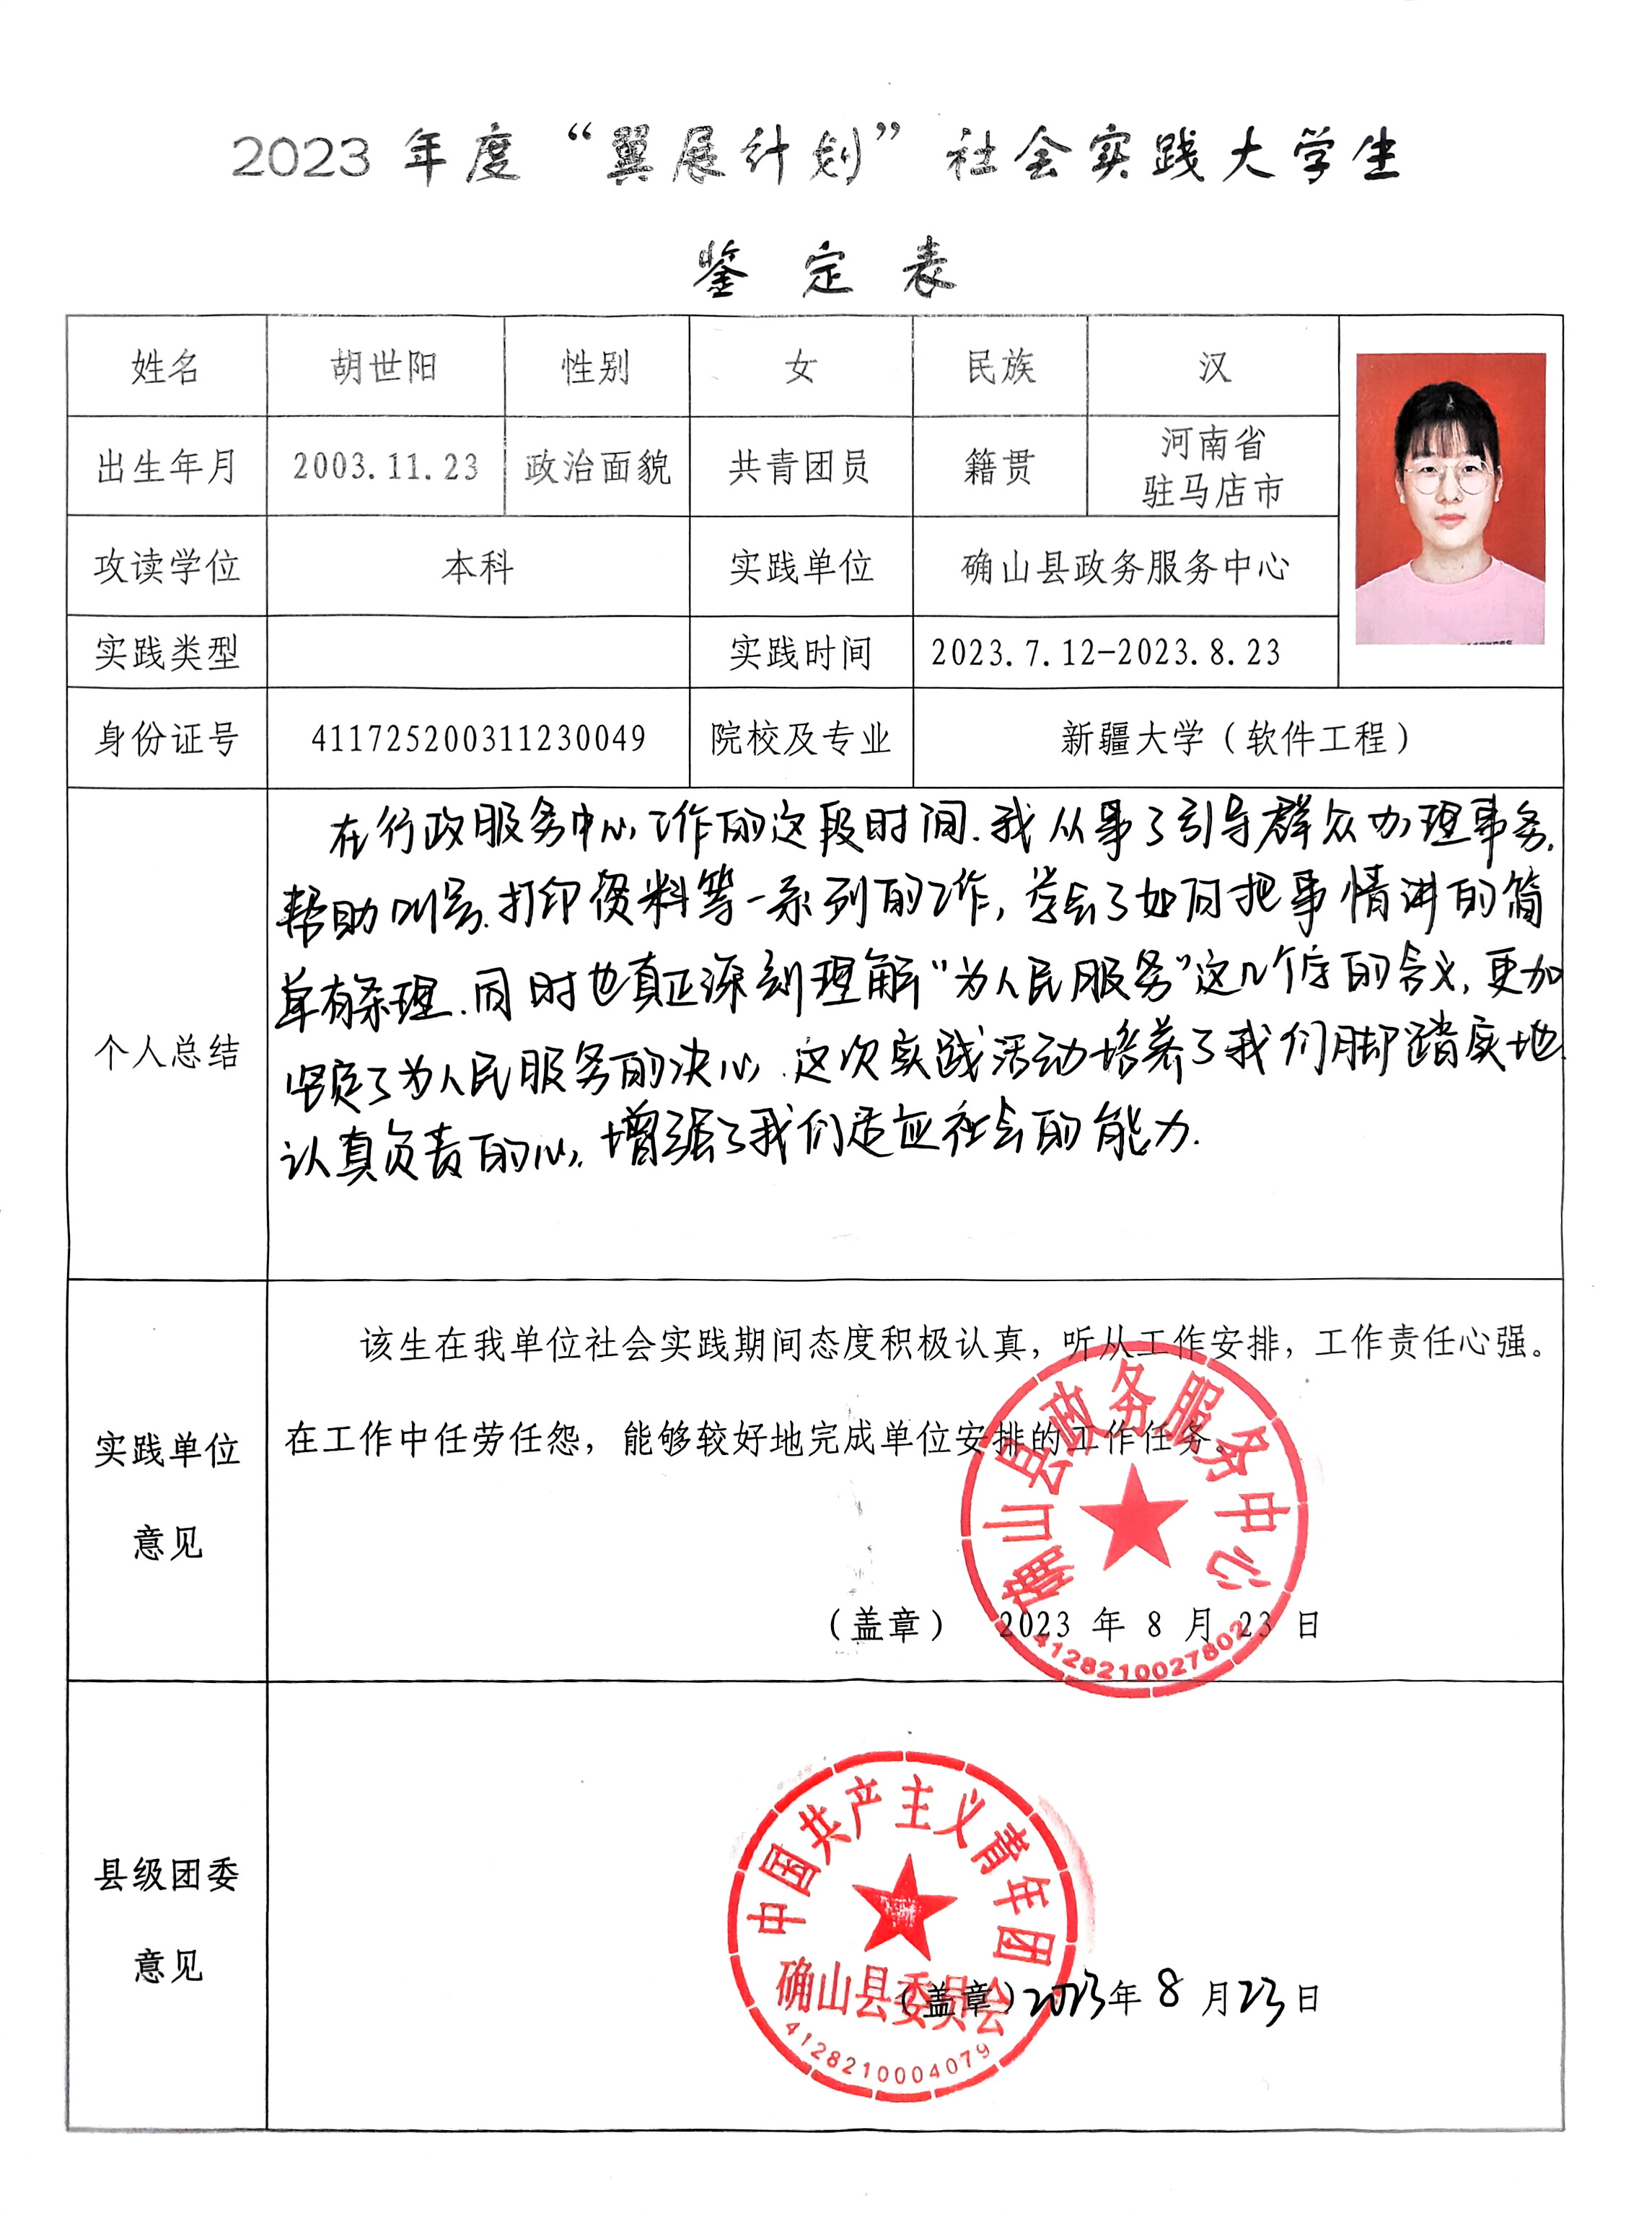 2023 年度“翼展计划”社会实践大学生
鉴 定 表
姓名 胡世阳 性别 女 民族 汉
出生年月 2003.11.23 政治面貌 共青团员 籍贯 河南省
驻马店市
攻读学位 本科 实践单位 确山县政务服务中心
实践类型 实践时间 2023.7.12-2023.8.23
身份证号 411725200311230049 院校及专业 新疆大学（软件工程）
个人总结
在行政服务中心工作的这段时间.我从事了引导群众办理事务,
帮助叫号.打印资料等一系列的工作,学会了如何把事情讲的简
单有条理.同时也真正深刻理解“为人民服务”这几个字的含义,更加
坚定了为人民服务的决心.这次实践活动培养了我们脚踏实地
认真负责的心.增强了我们适应社会的能力.
实践单位
意见
该生在我单位社会实践期间态度积极认真，听从工作安排，工作责任心强。
在工作中任劳任怨，能够较好地完成单位安排的工作任务。
（盖章） 2023 年 8 月 23 日
确山县政务服务中心
4128210027802
县级团委
意见
中国共产主义青年团
确山县委员会
（盖章）2023年 8 月23日
4128210004079